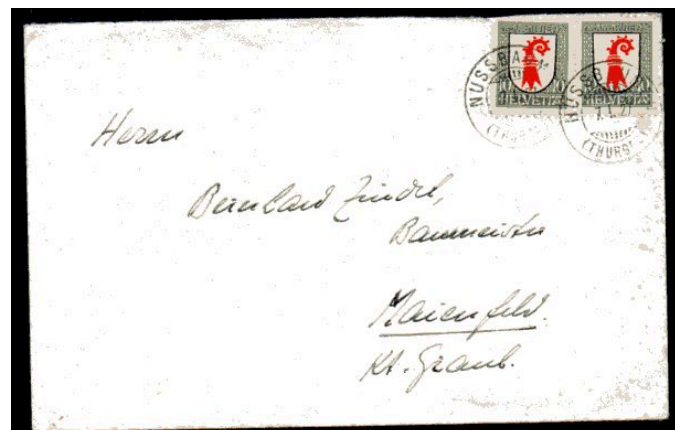 HELVETIA HELVETIA
NUSSBAUM
(THURG
NUSSB
7.1.2
(THURG
Herrn
Bernhard Zindel,
Baumeister
Maienfeld.
Kt. Graub.